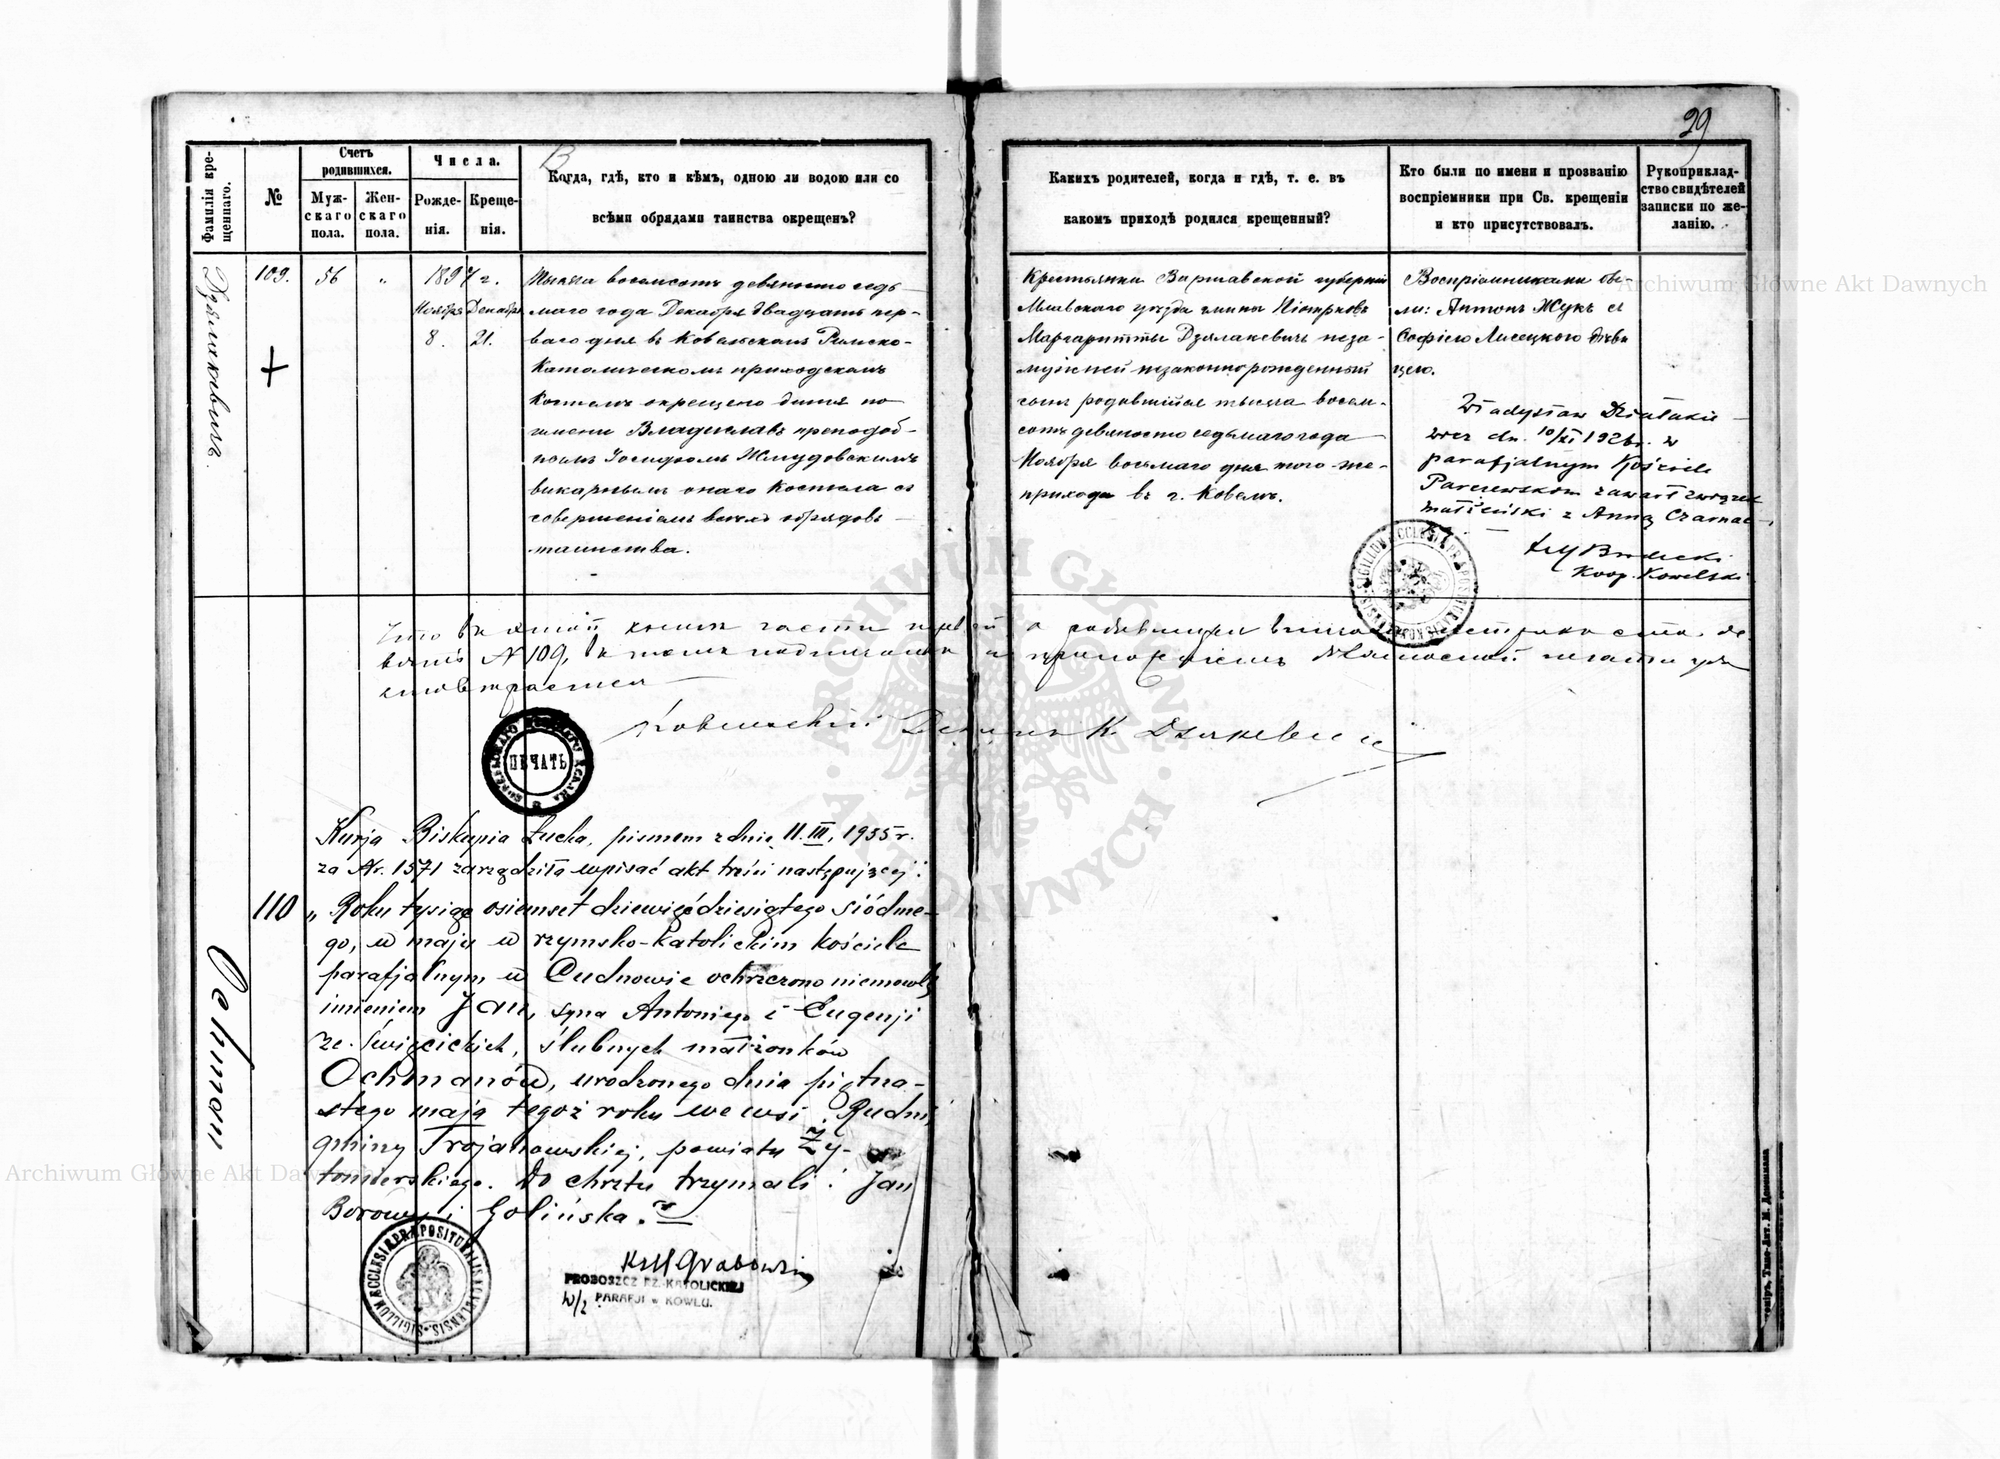 29
Фамилія кре-
щеннаго.
№
Счетъ
родившихся.
Муж-
скаго
пола.
Жен-
скаго
пола.
Числа.
Рожде-
нія.
Креще-
нія.
Когда, гдѣ, кто и кѣмъ, одною ли водою или со
всѣми обрядами таинства окрещенъ?
Какихъ родителей, когда и гдѣ, т. е. въ
какомъ приходѣ родился крещенный?
Кто были по имени и прозванію
воспріемники при Св. крещеніи
и кто присутствовалъ.
Рукоприклад-
ство свидѣтелей
записки по же-
ланію.
Дзялакевичъ.
109.
56
"
1897 г.
Ноября
8.
Декабря
21.
Тысяча восемсотъ девяносто седь-
маго года Декабря двадцать пер-
ваго дня въ Ковельскомъ Римско-
Католическомъ приходскомъ
Костелѣ окрещено дитя по
имени Владиславъ преподоб-
нымъ Іосифомъ Жмудовскимъ
викарнымъ онаго Костела съ
совершеніемъ всѣхъ обрядовъ
таинства.
Крестьянки Варшавской губерніи
уѣзда гмины
Маргаритты Дзялакевичъ неза-
мужней незаконнорожденный
сынъ родившійся тысяча восем-
сотъ девяносто седьмаго года
Ноября восьмаго дня того-же
прихода въ г. Ковелѣ.
Воспріемниками бы-
ли: Антонъ Жукъ съ
Софіею Лисецкого дѣви
цею.
Władysław Dziełakie-
wicz dn. 10/XI 1926r. w
parafjalnym Kościele
Parczewskom zawarł związek
małżeński z Anną Czarnac-
ką
Koop. Kowelski
Что въ этой книгѣ части первой о родившихся
вять N 109, въ томъ подписомъ и приложеніемъ печати удо
стовѣряется
Ковельскій Деканъ К.
ПЕЧАТЬ
Kurja Biskupia Łucka, pismem z dnia 11.III.1935 r.
za Nr. 1571 zarządziła wpisać akt treści następującej:
110
Ochman
„Roku tysiąc osiemset dziewięćdziesiątego siódme-
go, w maju w rzymsko-katolickim kościele
parafjalnym w Cudnowie ochrzczono niemowlę
imieniem Jan, syna Antoniego i Eugenji
ze Święcickich, ślubnych małżonków
Ochmanów, urodzonego dnia piętna-
stego maja tegoż roku we wsi Rudni,
gminy Trojanowskiej, powiatu Ży-
tomierskiego. Do chrztu trzymali: Jan
Borowy i Golińska."
SIGILLUM ECCLESIÆ PRÆPOSITURALIS
PROBOSZCZ RZ.-KATOLICKIEJ
PARAFJI w KOWLU.
Archiwum Główne Akt Dawnych
Archiwum Główne Akt Dawnych
ARCHIWUM GŁÓWNE · AKT DAWNYCH ·